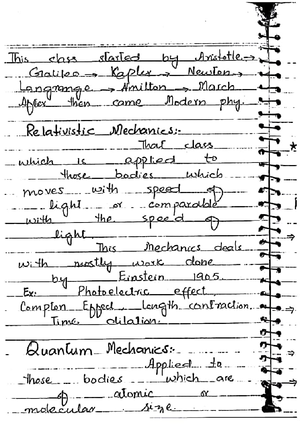 This class started by Aristotle →
Galileo → Kepler → Newton →
Langrange → Hmilton → March
After then came Modern phy.
Relativistic Mechanics:-
That class
which is applied to
those bodies which
moves with speed of
light or comparable
with the speed of
light
This Mechanics deals
with mostly work done
by Einstein 1905.
Ex: Photoelectric effect
Compton Effect Length contraction.
Time dilation.
Quantum Mechanics:-
Applied to
those bodies which are
of atomic or
molecular size.